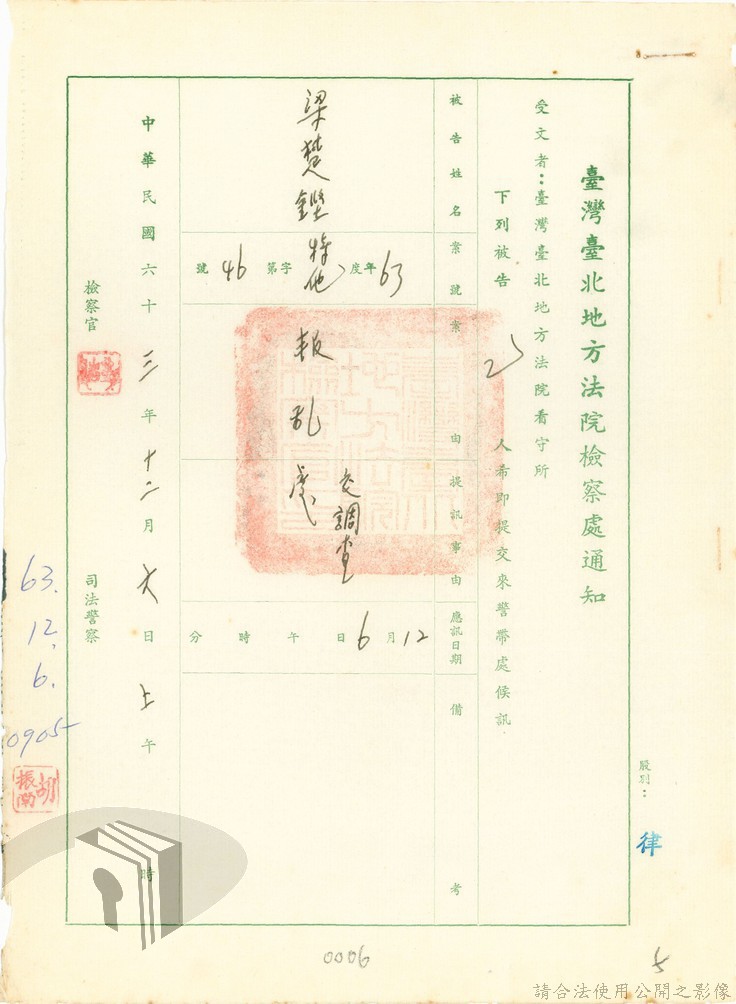 臺灣臺北地方法院檢察處通知
股別：律
受文者：臺灣臺北地方法院看守所
下列被告 人希即提交來警帶處候訊
被告姓名
案號
案由
提訊事由
應訊日期
備考
梁楚鏗
63年度特他字第46號
叛乱
交調查處
12月6日午時分
中華民國六十三年十二月六日上午時
檢察官
司法警察
63.
12.
6.
0905
胡振南
0006
5
請合法使用公開之影像